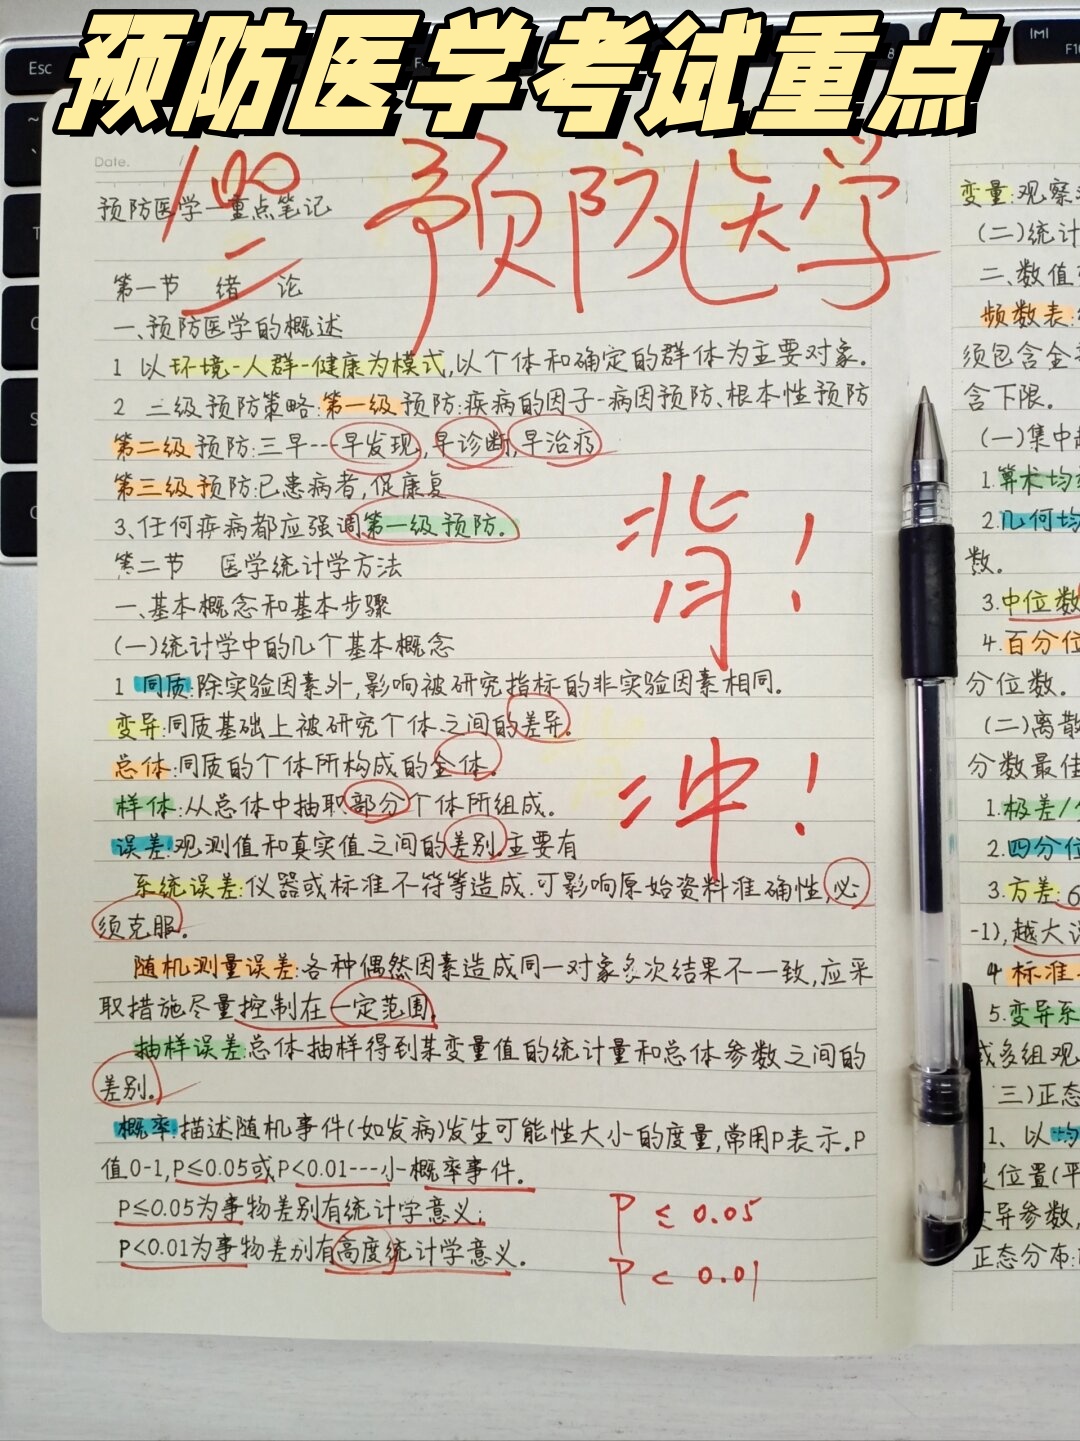 预防医学考试重点
Esc
F10
Date.
100
预防医学
预防医学-重点笔记
第一节 绪论
一、预防医学的概述
1 以环境-人群-健康为模式,以个体和确定的群体为主要对象.
2 三级预防策略:第一级预防:疾病的因子-病因预防、根本性预防
第二级预防:三早---早发现,早诊断,早治疗
第三级预防:已患病者,促康复
3、任何疾病都应强调第一级预防.
背!
第二节 医学统计学方法
一、基本概念和基本步骤
(一)统计学中的几个基本概念
1 同质:除实验因素外,影响被研究指标的非实验因素相同.
变异:同质基础上被研究个体之间的差异.
总体:同质的个体所构成的全体.
样体:从总体中抽取部分个体所组成.
冲!
误差:观测值和真实值之间的差别.主要有
系统误差:仪器或标准不符等造成.可影响原始资料准确性,必
须克服.
随机测量误差:各种偶然因素造成同一对象多次结果不一致,应采
取措施尽量控制在一定范围.
抽样误差:总体抽样得到某变量值的统计量和总体参数之间的
差别.
概率:描述随机事件(如发病)发生可能性大小的度量,常用P表示.P
值0-1,P≤0.05或P<0.01---小概率事件.
P≤0.05为事物差别有统计学意义;
P<0.01为事物差别有高度统计学意义.
P≤0.05
P<0.01
变量:观察
(二)统计
二、数值
频数表:
须包含全
含下限.
(一)集中
1.算术均
2.几何均
数.
3.中位数
4.百分位
分位数.
(二)离散
分数最佳
1.极差/
2.四分位
3.方差:
-1),越大
4 标准
5.变异系
或多组观
三)正态
1、以均
位置(平
异参数,
正态分布: